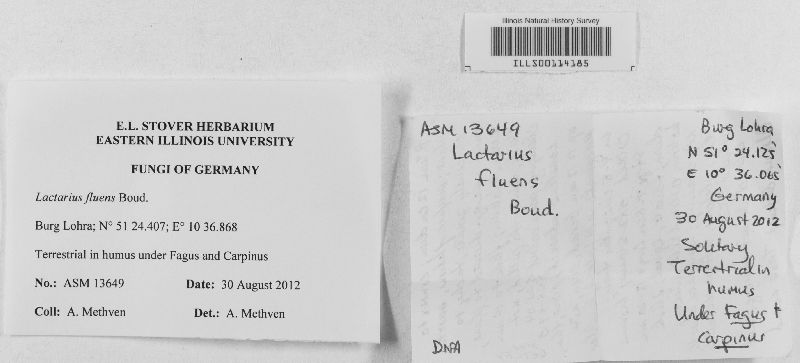 Illinois Natural History Survey
ILLS00114185
E.L. STOVER HERBARIUM
EASTERN ILLINOIS UNIVERSITY
FUNGI OF GERMANY
Lactarius fluens Boud.
Burg Lohra; N° 51 24.407; E° 10 36.868
Terrestrial in humus under Fagus and Carpinus
No.: ASM 13649 Date: 30 August 2012
Coll: A. Methven Det.: A. Methven
ASM 13649
Lactarius
fluens
Boud.
DNA
Burg Lohra
N 51° 24.125'
E 10° 36.065'
Germany
30 August 2012
Solitary
Terrestrial in
humus
Under Fagus +
Carpinus